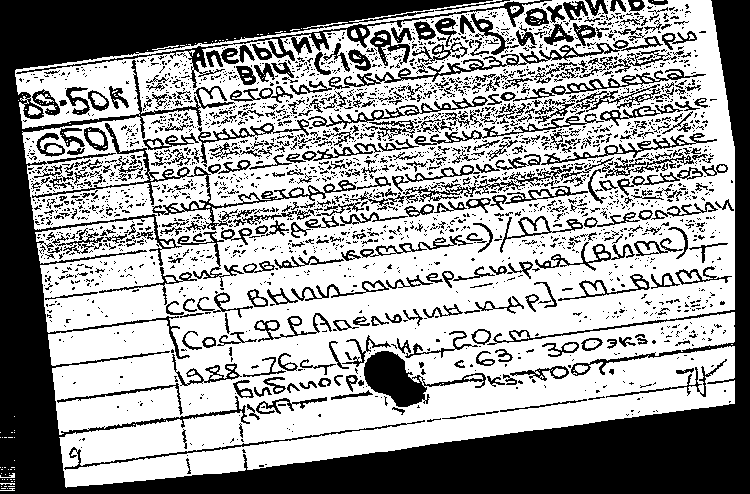 Апельцин, Файвель Рахмилье-
вич (1917-1992) и др.
89-50к
6501
Методические указания по при-
менению рационального комплекса
геолого-геохимических и геофизиче-
ских методов при поисках и оценке
месторождений вольфрама (прогнозно
поисковый комплекс) / М-во геологии
СССР, ВНИИ минер. сырья (ВИМС),
[Сост. Ф.Р. Апельцин и др.] - М.: ВИМС,
1988. - 76 с., [1] л. ил.; 20 см.
Библиогр. с. 63. - 300 экз.
ДСП. Экз. N 007.